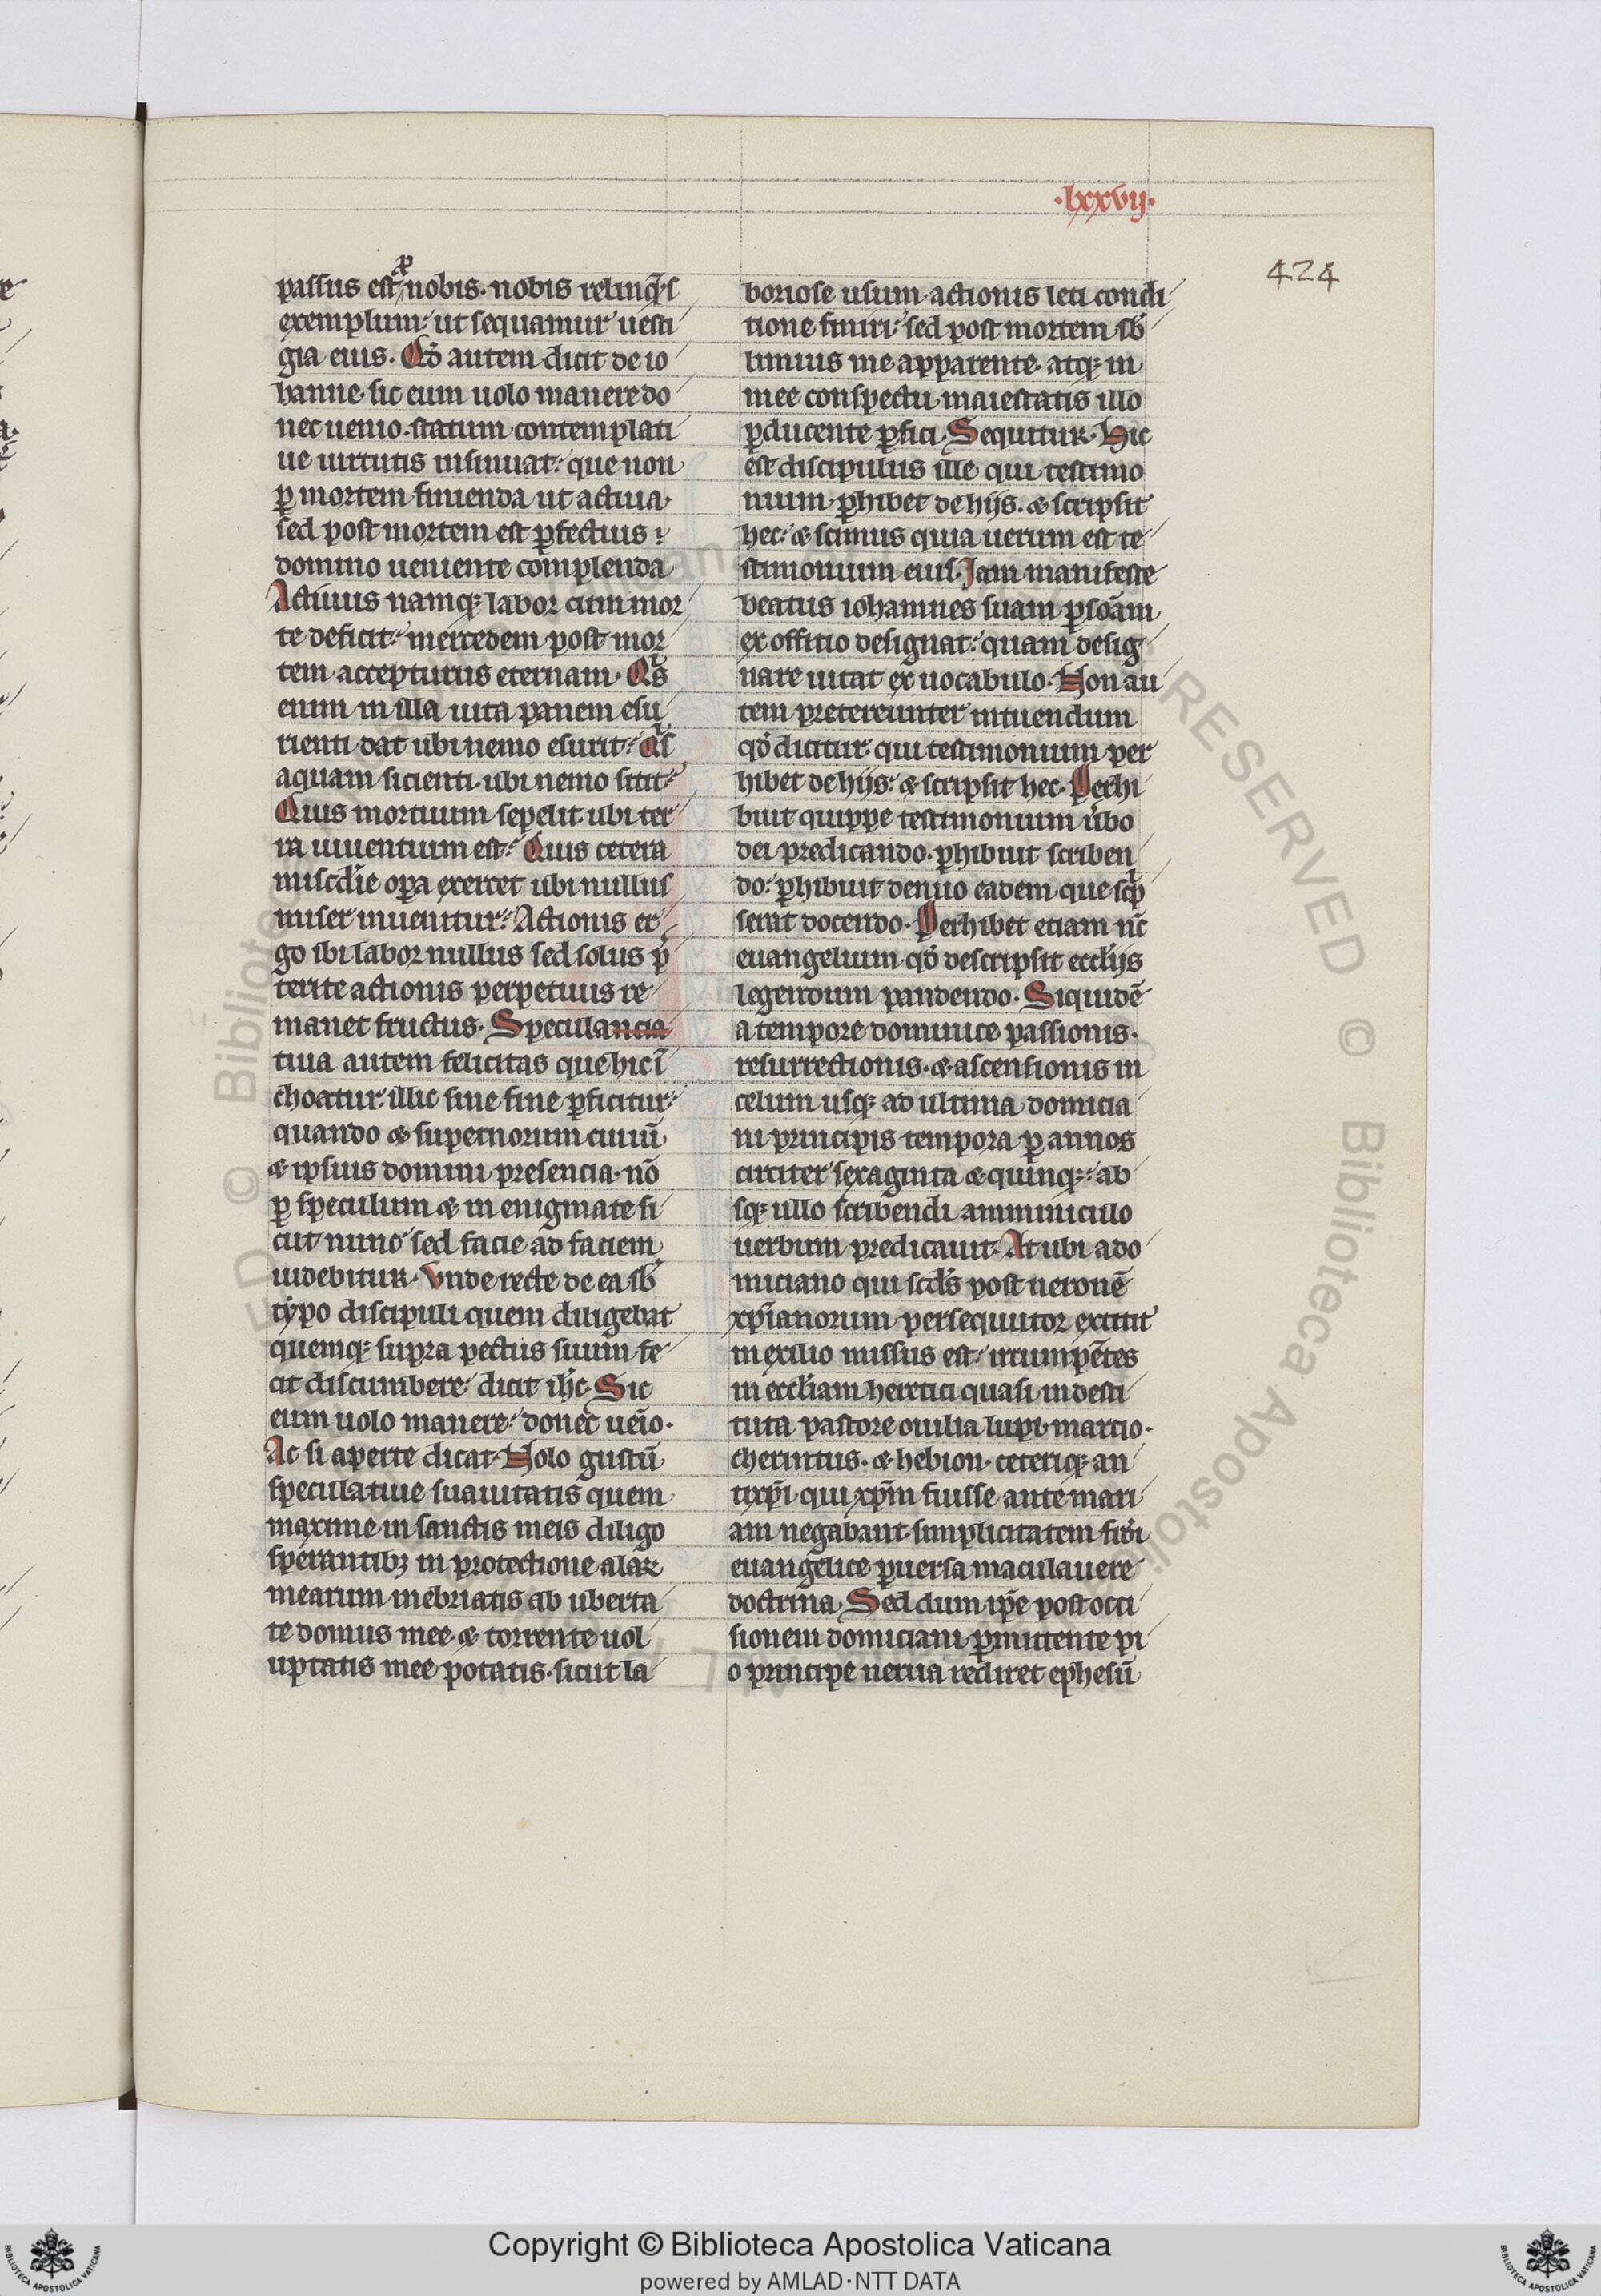 ·lxxvij·
424
passus est ꝓ nobis· nobis relinq̄s
exemplum: ut sequamur uesti
gia eius. Qd̓ autem dicit de io
hanne· sic eum uolo manere do
nec uenio· statum contemplati
ue uirtutis insinuat: que non
ꝑ mortem finienda ut actiua·
sed post mortem est ꝑfectius i
domino ueniente complenda
Actiuus namqꝫ labor cum mor
te deficit: mercedem post mor
tem accepturus eternam. Qͥs
enim in illa uita panem esu
rienti dat ubi nemo esurit: Qͥs
aquam sicienti ubi nemo sitit:
Quis mortuum sepelit ubi ter
ra uiuentium est: Quis cetera
miscd̓ie oꝑa exercet ubi nullus
miser inuenitur: Actionis er
go ibi labor nullus sed solus p̄
terite actionis perpetuus re
manet fructus. Speculancia
tiua autem felicitas que hic ī
choatur illic sine fine ꝑficitur:
quando & supernorum ciuiū
& ipsius domini presencia· nō
ꝑ speculum & in enigmate si
cut nunc sed facie ad faciem
uidebitur. Vnde recte de ea sb̓
typo discipuli quem diligebat
quemqꝫ supra pectus suum fe
cit discumbere dicit ih̓c· Sic
eum uolo manere: donec uēio·
Ac si aperte dicat· Nolo gustū
speculatiue suauitatis quem
maxime in sanctis meis diligo
sperantibꝫ in protectione alaꝝ
mearum inebriatis ab uberta
te domus mee· & torrente uol
uptatis mee potatis· sicut la
boriose usum actionis leti condi
tione finiri: sed post mortem sb̓
limius me apparente· atqꝫ in
mee conspectu maiestatis illo
ꝑducente ꝑfici. Sequitur. Hic
est discipulus ille qui testimo
nium ꝑhibet de hijs. & scripsit
hec: & scimus quia uerum est te
stimonium eius. Jam manifeste
beatus iohannes suam ꝑsoām
ex offitio designat: quam desig
nare uitat ex uocabulo. Non au
tem pretereunter intuendum
qd̓ dicitur qui testimonium per
hibet de hijs: & scripsit hec. Perhi
buit quippe testimonium u̓bo
dei predicando· ꝑhibuit scriben
do: ꝑhibuit denuo eadem que scͥp
serat docendo. Perhibet etiam nc̄
euangelium qd̓ descripsit eccl̓ijs
legendum pandendo. Siquidē
a tempore dominice passionis·
resurrectionis· & ascensionis in
celum usqꝫ ad ultima domicia
ni principis tempora ꝑ annos
circiter sexaginta & quinqꝫ: ab
sqꝫ ullo scribendi amminiculo
uerbum predicauit. At ubi a do
miciano qui scd̓s post neronē
xp̄ianorum persequutor extitit
in exilio missus est: irrumpētes
in eccl̓iam heretici quasi in desti
tuta pastore ouilia lupi· marcio·
cherintus. & hebion· ceteriqꝫ an
tixp̄i qui xp̄m fuisse ante mari
am negabant simplicitatem fid̓i
euangelice ꝑuersa maculauere
doctrina. Sed dum ip̄e post occi
sionem domiciani ꝑmittente pi
o principe nerua rediret ephesū
Copyright © Biblioteca Apostolica Vaticana
powered by AMLAD·NTT DATA